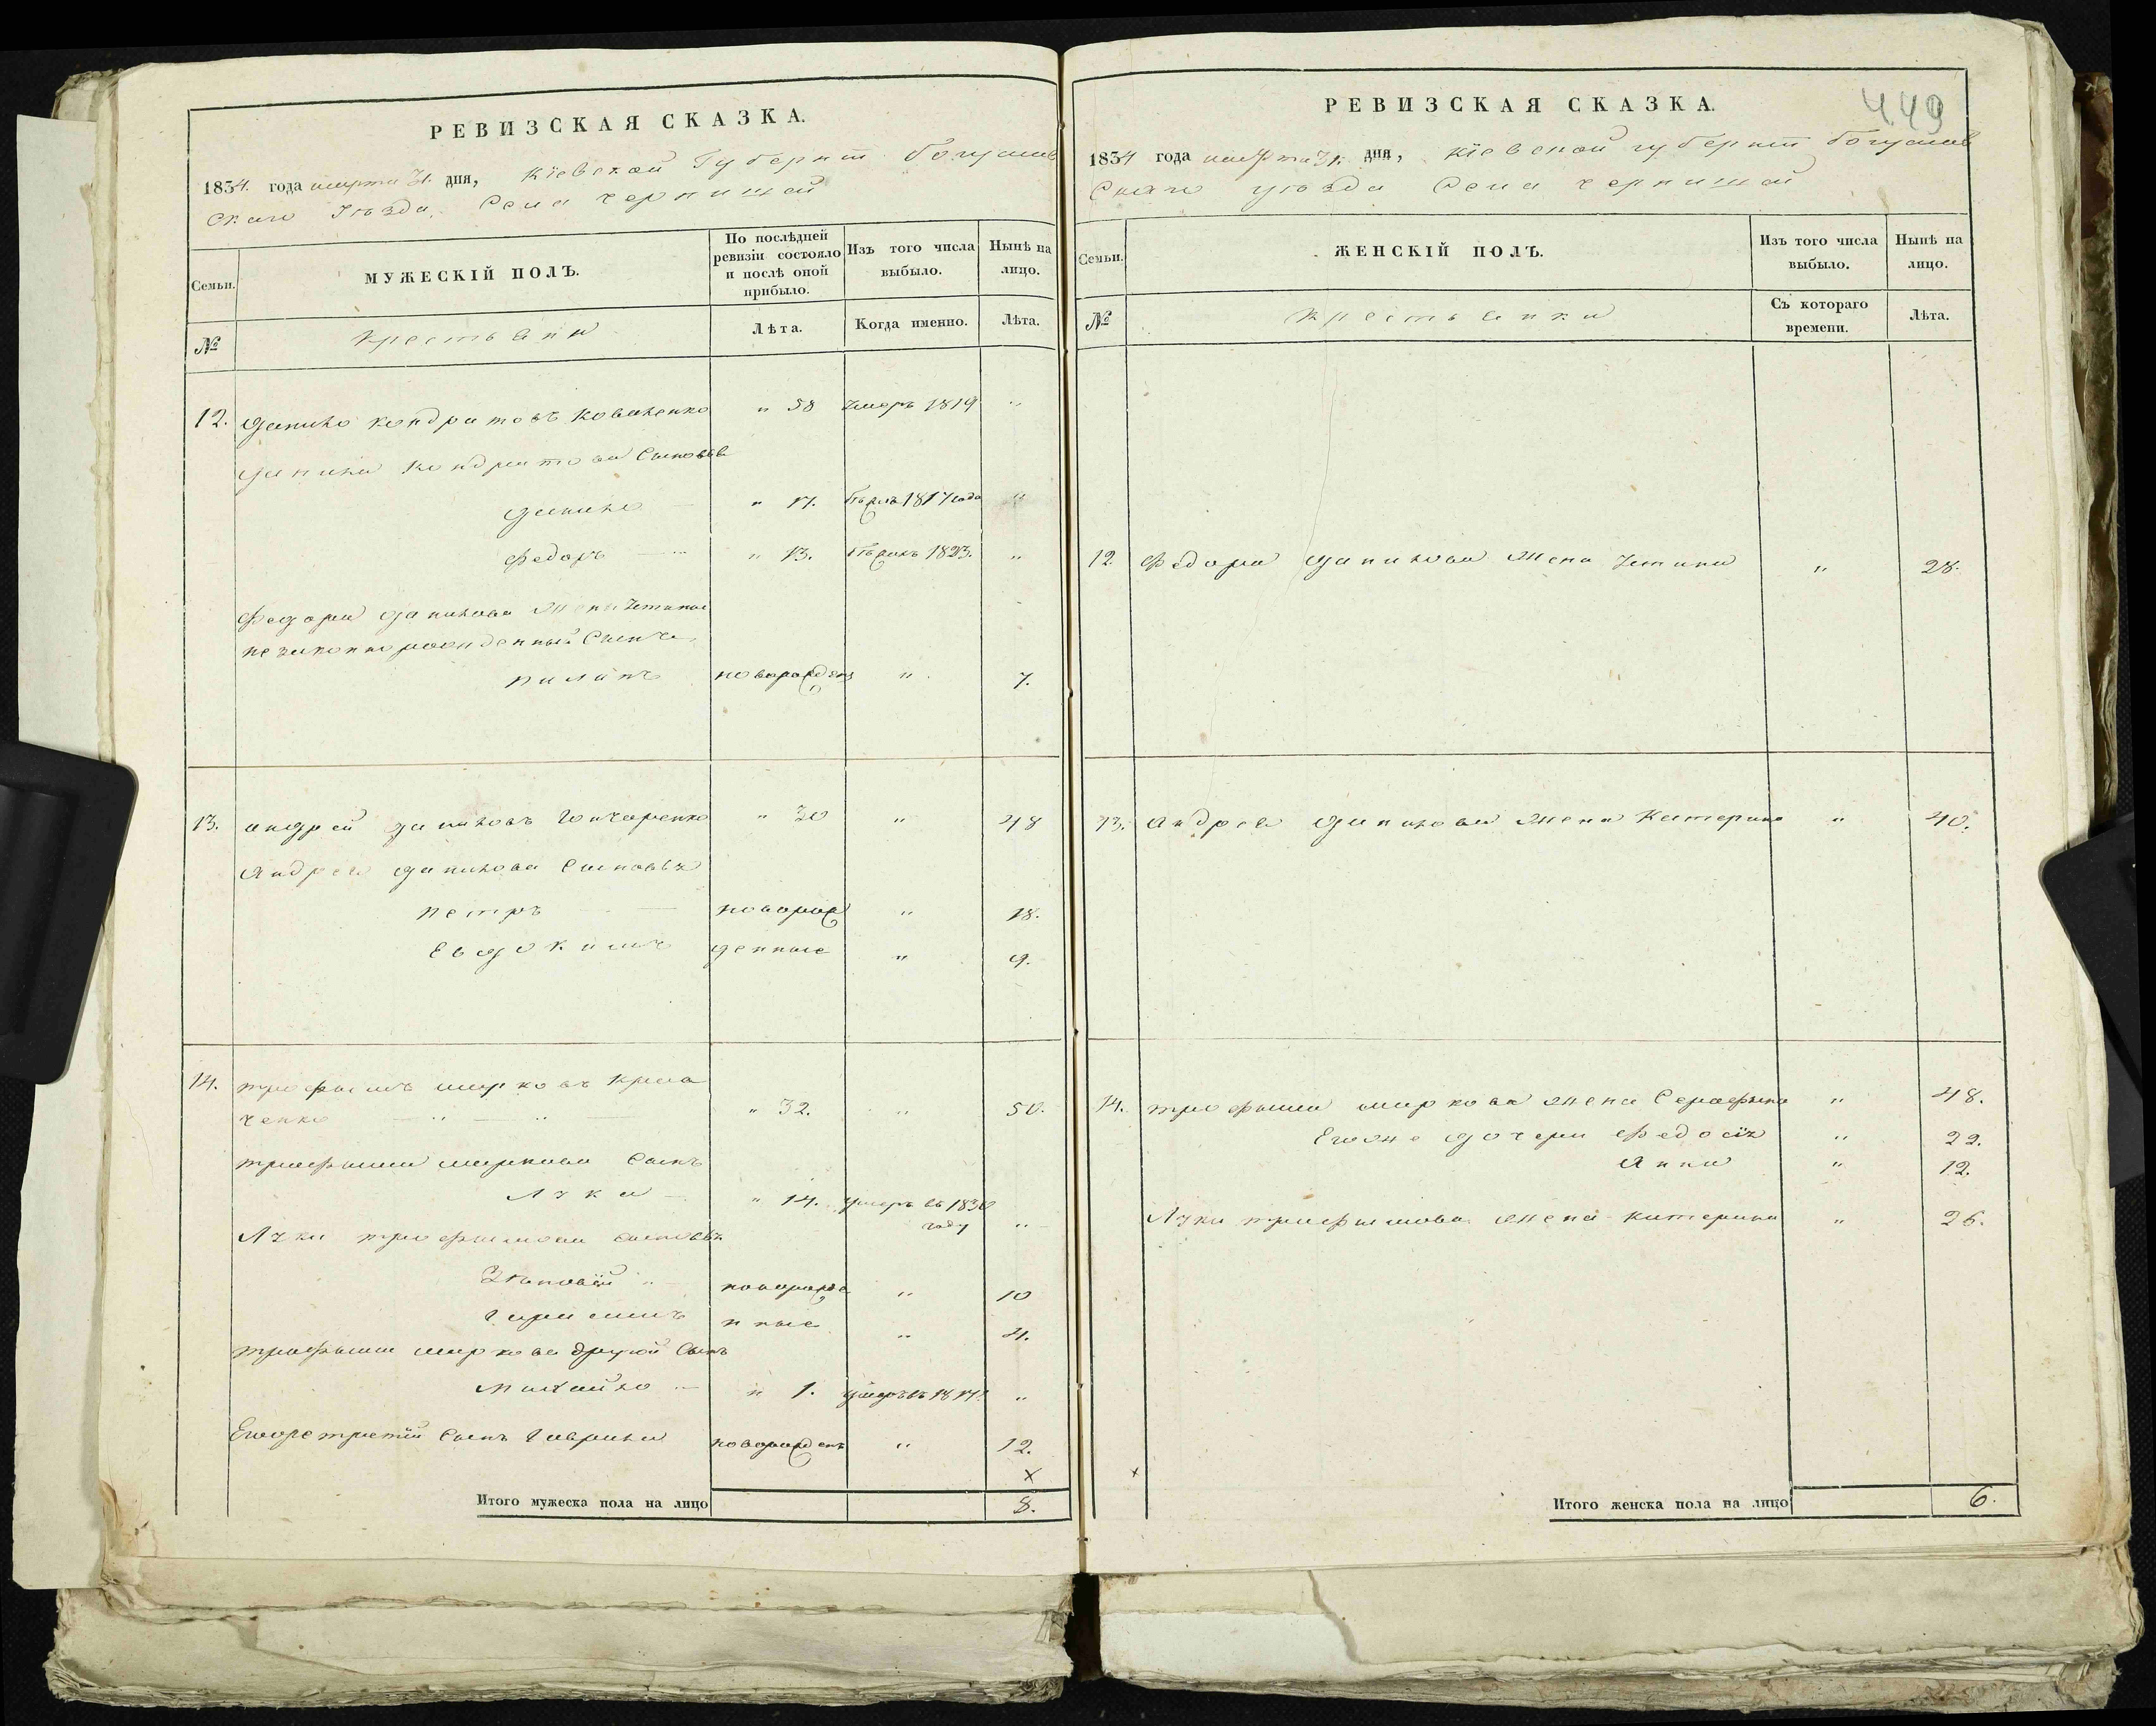 РЕВИЗСКАЯ СКАЗКА.
1834. года марта 31. дня, Кіевской Губерніи Богуслав
скаго Уѣзда, Села Чернишей
Семьи.
МУЖЕСКІЙ ПОЛЪ.
По послѣдней ревизіи состояло и послѣ оной прибыло.
Изъ того числа выбыло.
Нынѣ на лицо.
№
Крестьяни
Лѣта.
Когда именно.
Лѣта.
12. Данило Кондратовъ Коваленко " 58 умеръ 1819 "
Данила Кондратова Сыновья
Данило " 17. бѣжалъ 1817 года "
Федоръ " 13. бѣжалъ 1823. "
Федора Данилова жены
незаконнорожденный Сынъ
новорожден " 7.
13. Андрей Даниловъ Гончаренко " 30 " 48
Андрея Данилова Сыновья
Петръ новорож " 18.
Евдокимъ денные " 9.
14. Трофимъ Марковъ
ченко " 32. " 50.
Трофима Маркова Сынъ
Лука " 14. умеръ въ 1830
году "
Луки Трофимова Сыновья
Зѣновій " новорожде " 10
Герасимъ нные " 4.
Трофима Маркова другой Сынъ
Михайло " 1. умеръ въ "
Егоже третій Сынъ Гаврила новорожден " 12.
x
Итого мужеска пола на лицо 8.
449
РЕВИЗСКАЯ СКАЗКА.
1834 года марта 31. дня, Кіевской губерніи Богуслав
скаго уѣзда Села Чернишей
Семьи.
ЖЕНСКІЙ ПОЛЪ.
Изъ того числа выбыло.
Нынѣ на лицо.
№
Крестьянки
Съ котораго времени.
Лѣта.
12 Федора Данилова жена " 28.
13. Андрея Данилова жена Катерина " 40.
14. Трофима Маркова жена " 48.
Егоже дочери Федосія " 22.
Анна " 12.
Луки Трофимова жена Катерина " 26.
x
Итого женска пола на лицо 6.